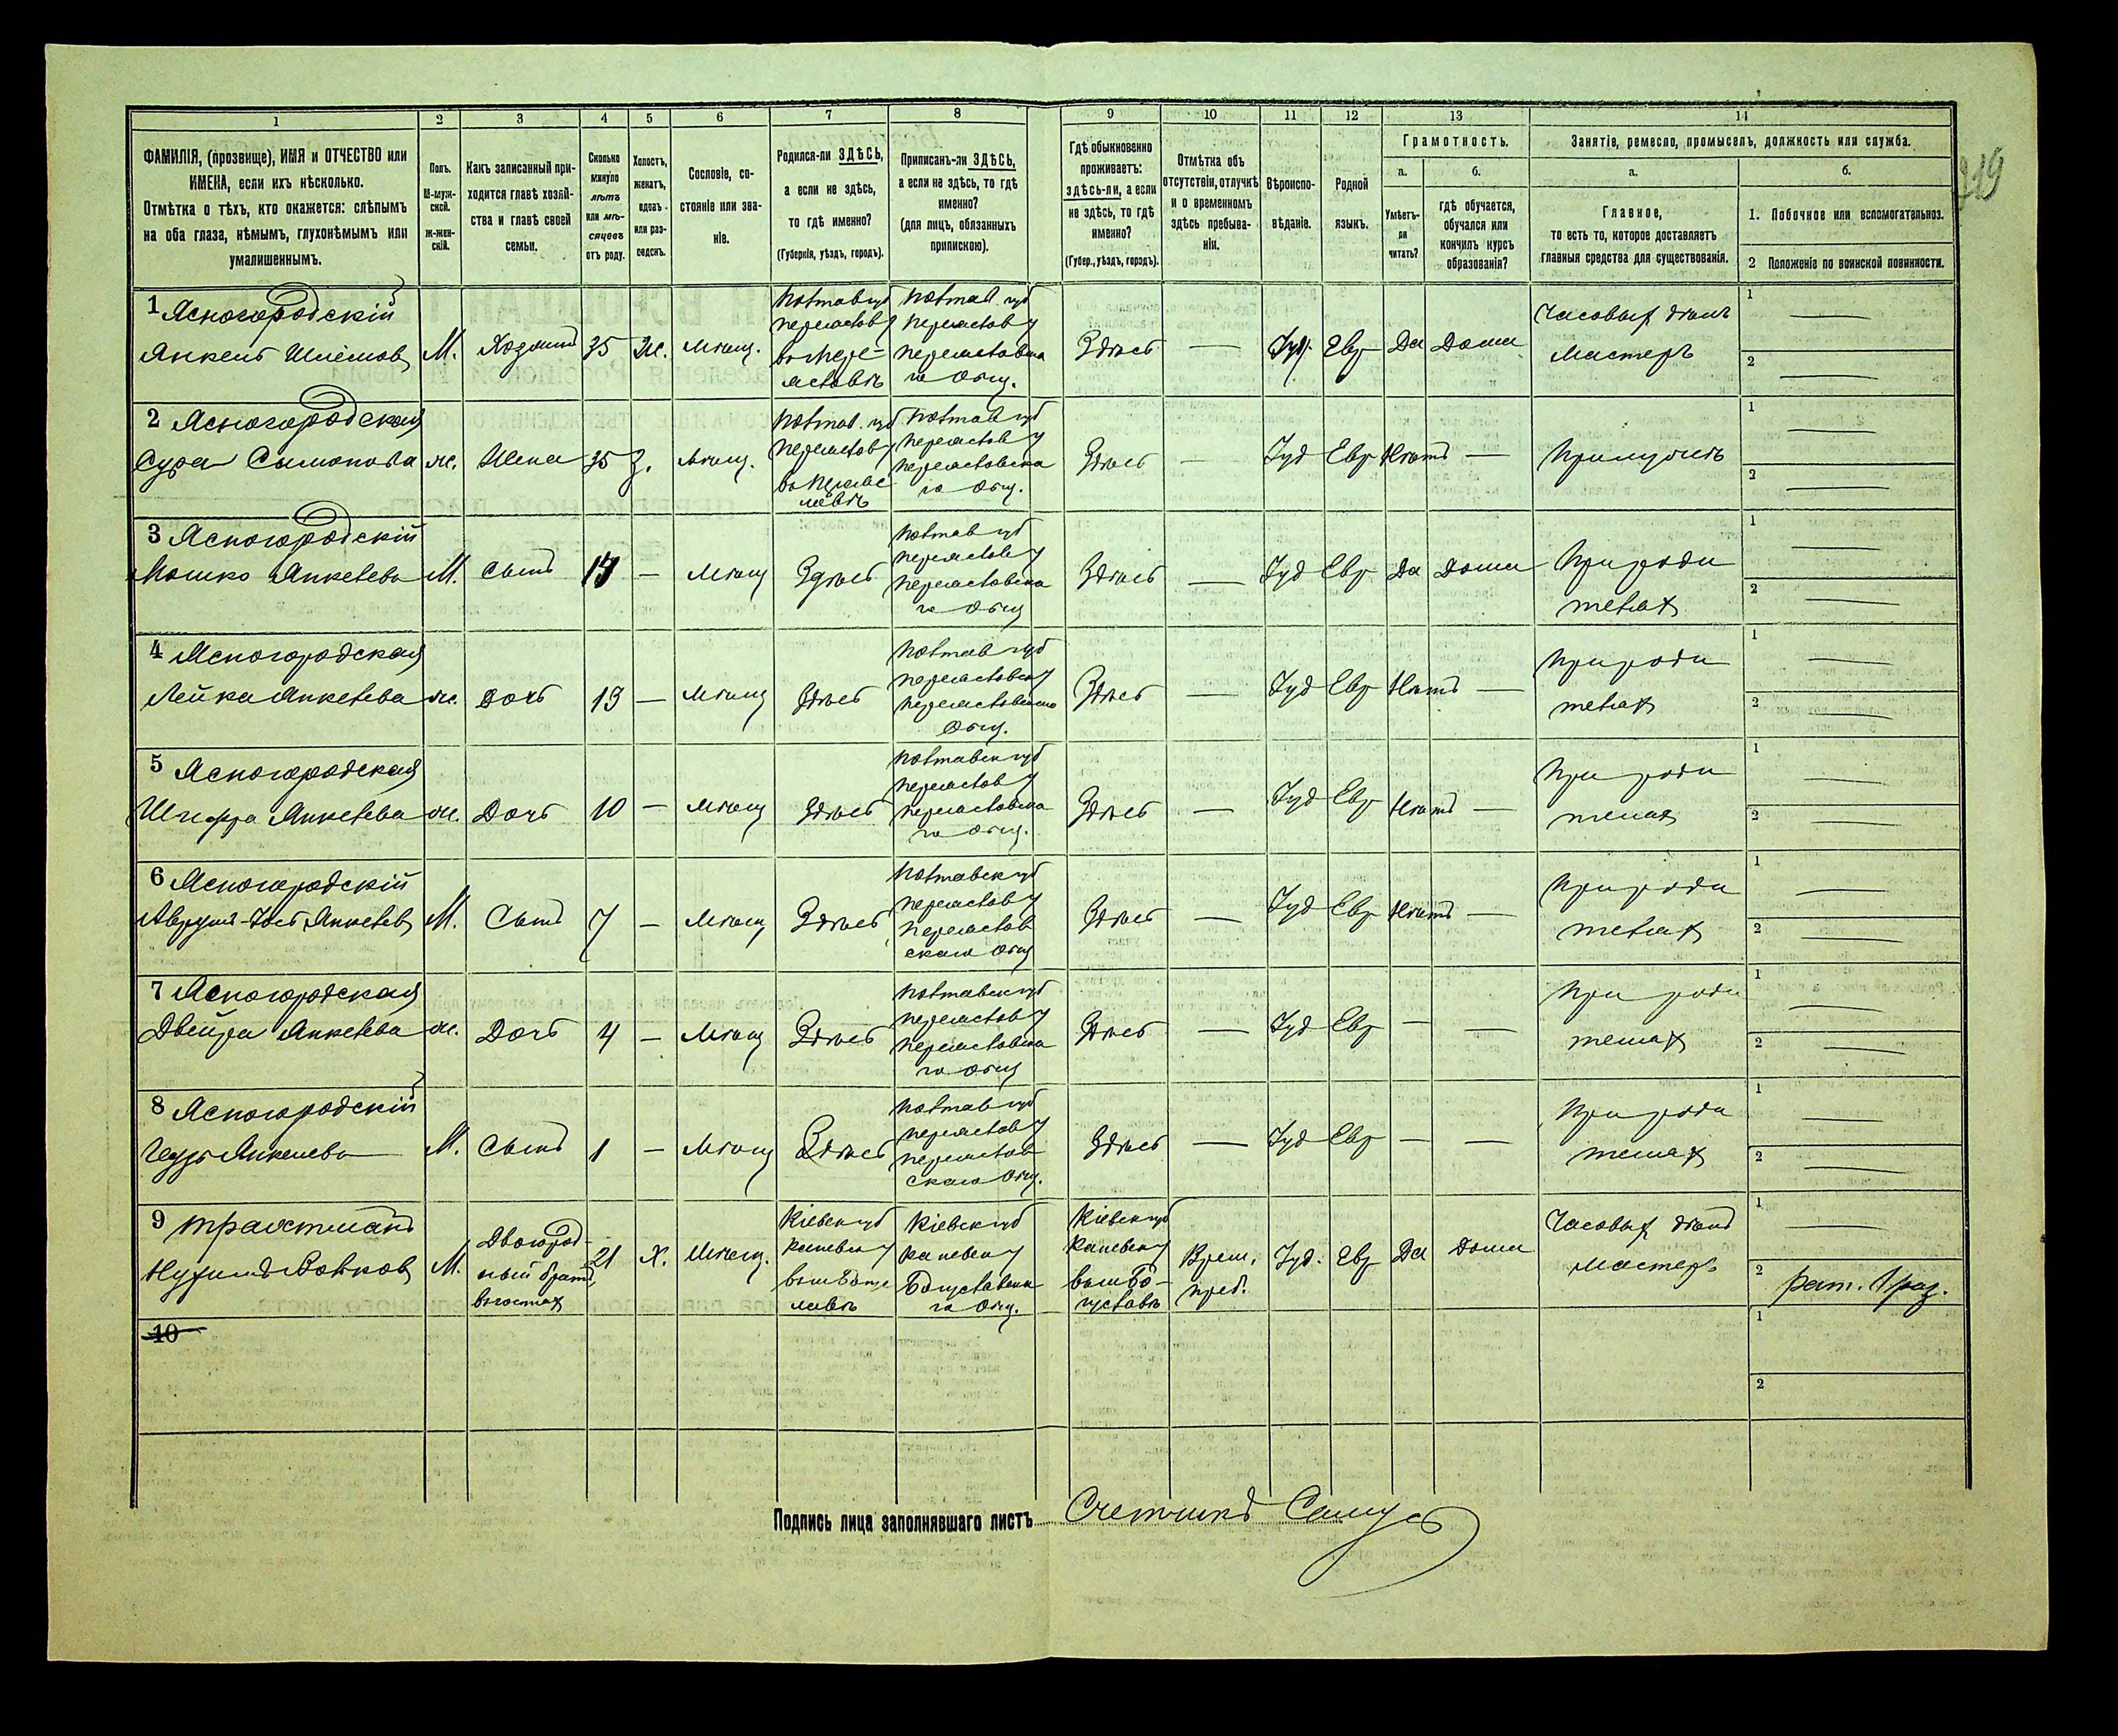 1
2
3
4
5
6
7
8
9
10
11
12
13
14
ФАМИЛІЯ, (прозвище), ИМЯ и ОТЧЕСТВО или
ИМЕНА, если ихъ нѣсколько.
Отмѣтка о тѣхъ, кто окажется: слѣпымъ
на оба глаза, нѣмымъ, глухонѣмымъ или
умалишеннымъ.
Полъ.
М-муж-
ской.
ж-жен-
скій.
Какъ записанный при-
ходится главѣ хозяй-
ства и главѣ своей
семьи.
Сколько
минуло
лѣтъ
или мѣ-
сяцевъ
отъ роду.
Холостъ,
женатъ,
вдовъ
или раз-
веденъ.
Сословіе, со-
стояніе или зва-
ніе.
Родился-ли ЗДѢСЬ,
а если не здѣсь,
то гдѣ именно?
(Губернія, уѣздъ, городъ).
Приписанъ-ли ЗДѢСЬ,
а если не здѣсь, то гдѣ
именно?
(для лицъ, обязанныхъ
припискою).
Гдѣ обыкновенно
проживаетъ:
здѣсь-ли, а если
не здѣсь, то гдѣ
именно?
(Губер., уѣздъ, городъ).
Отмѣтка объ
отсутствіи, отлучкѣ
и о временномъ
здѣсь пребыва-
ніи.
Вѣроиспо-
вѣданіе.
Родной
языкъ.
Грамотность.
а.
Умѣетъ-
ли
читать?
б.
гдѣ обучается,
обучался или
кончилъ курсъ
образованія?
Занятіе, ремесло, промыселъ, должность или служба.
а.
Главное,
то есть то, которое доставляетъ
главныя средства для существованія.
б.
1. Побочное или вспомогательноз.
2 Положеніе по воинской повинности.
219
1 Ясногородскій
Янкель Шлёмов
М.
Хозяинъ
35
Ж.
Мѣщ.
Полтав губ
Переяслов у
въ Пере-
яславлѣ
Полтав. губ
Переяслов у
Переяславска
го Общ.
Здѣсь
—
Іуд.
Евр
Да
Дома
Часовыхъ дѣлъ
мастеръ
1 —
2 —
2 Ясногородская
Сура Сымонова
ж.
Жена
35
З.
Мѣщ.
Полтав. губ
Переяслов у
Полтав губ
Переяслов у
Переясловска
го Общ.
Здѣсь
—
Іуд
Евр
Нѣтъ
—
При мужѣ
1
2 —
3 Ясногородскій
Мошко Янкелевъ
М.
Сынъ
—
Мѣщ
Здѣсь
Полтав губ
Переяслов у
Переясловска
го Общ
Здѣсь
—
Іуд
Евр
Да
Дома
При роди
теляхъ
1 —
2 —
4 Ясногородская
Лейка Янкелева
ж.
Дочь
13
—
Мѣщ
Здѣсь
Полтав губ
Переясловск у
Переясловскаго
Общ.
Здѣсь
—
Іуд
Евр
Нѣтъ
—
При роди
теляхъ
1 —
2 —
5 Ясногородская
Шифра Янкелева
ж.
Дочь
10
—
Мѣщ
Здѣсь
Полтавск губ
Переяслов у
Переясловска
го Общ.
Здѣсь
—
Іуд
Евр
Нѣтъ
—
При роди
теляхъ
1 —
2 —
6 Ясногородскій
Аврумъ-Іось Янкелев
М.
Сынъ
7
—
Мѣщ
Здѣсь
Полтавск губ
Переяслов у
Переяслов
скаго Общ
Здѣсь
—
Іуд
Евр
Нѣтъ
—
При роди
теляхъ
1 —
2 —
7 Ясногородская
Двейра Янкелева
ж.
Дочь
4
—
Мѣщ
Здѣсь
Полтавск губ
Переяслов у
Переясловска
го Общ
Здѣсь
—
Іуд
Евр
—
—
При роди
теляхъ
1 —
2 —
8 Ясногородскій
Янкелевъ
М.
Сынъ
1
—
Мѣщ
Здѣсь
Полтав губ
Переяслов у
Переяслов
скаго Общ.
Здѣсь
—
Іуд
Евр
—
—
При роди
теляхъ
1 —
2 —
9 Трахтманъ
Нухимъ Волков
М.
Двоюрод-
ный братъ
въ гостях
21
Х.
Мѣщ.
Кіевск губ
Каневск у
Кіевск губ
Каневск у
Богуславска
го Общ.
Кіевск губ
Каневск у
въ м Бо-
гуславѣ
Врем.
преб.
Іуд.
Евр
Да
Дома
Часовыхъ дѣлъ
мастеръ
1 —
2 рат. 1 раз.
10
1
2
Подпись лица заполнявшаго листъ Счетчикъ